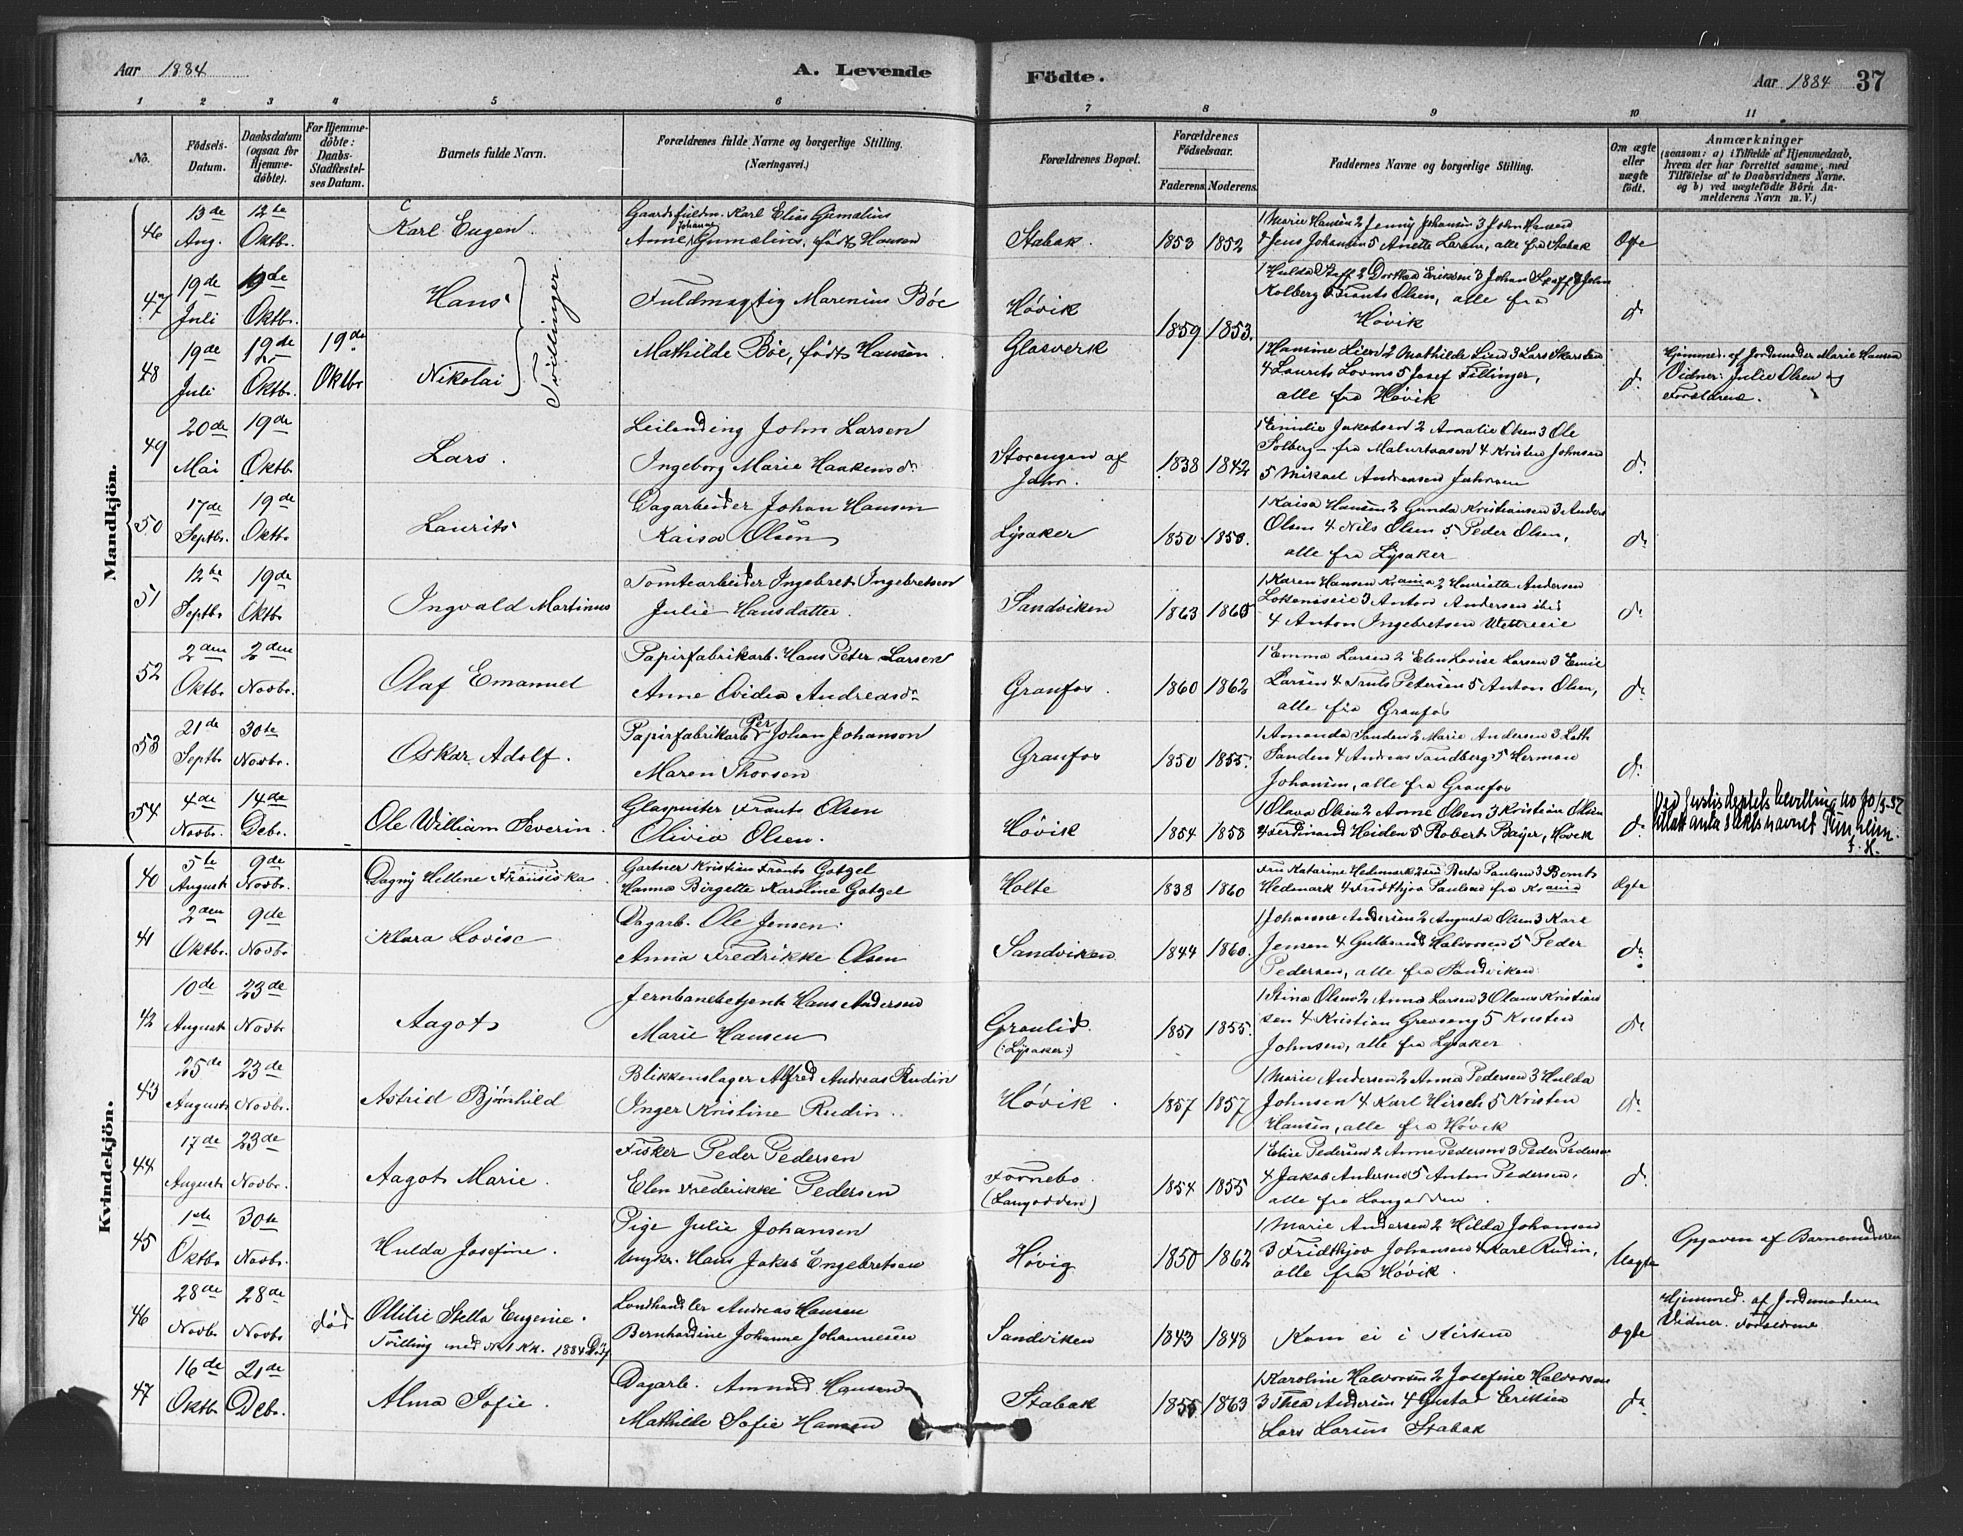 Aar 1884
A. Levende
Födte.
Aar 1884 37
1 2 3 4 5 6 7 8 9 10 11
No.
Födsels-
Datum.
Daabsdatum
(ogsaa for
Hjemme-
döbte).
For Hjemme-
döbte:
Daabs-
Stadfæstel-
ses Datum.
Barnets fulde Navn.
Forældrenes fulde Navne og borgerlige Stilling.
(Næringsvei.)
Forældrenes Bopæl.
Forældrenes
Födselsaar.
Faderens. Moderens.
Faddernes Navne og borgerlige Stilling.
Om ægte
eller
uægte
födt.
Anmærkninger
(saasom: a) i Tilfælde af Hjemmedaab,
hvem der har forrettet samme, med
Tilföielse af to Daabsvidners Navne,
og b) ved uægtefödte Börn An-
melderens Navn m. V.)
Mandkjön.
46
13de
Aug.
12te
Oktbr.
Karl Eugen.
Gaardsfuldm. Karl Elias Gumælius
Johanne
Anne Gumælius, födt Hansen
Stabæk.
1853 1852
1 Marie Hansen 2 Jenny Johansen 3 John Hansen
4 Jens Johansen 5 Anette Larsen, alle fra Stabæk
Ægte
47
19de
Juli
19de
Oktbr.
Hans
Tvillinger
Fuldmægtig Marenius Bøe
Høvik
1859 1853.
1 Hulda Staff 2 Dorthea Eriksen 3 Johan Staff 4 John
Kolberg 5 Frants Olsen, alle fra
Høvik
do
48
19de
Juli
19de
Oktbr.
19de
Oktbr
Nikolai
Mathilde Bøe, født Hansen.
Glasverk
1 Hansine Lien 2 Mathilde Lien 3 Lars
4 Laurits 5 Josef Fillinger,
alle fra Høvik
do
Hjemmed. af Jordemoder Marie Hansen
Vidner: Julie Olsen og
Forældrene.
49
20de
Mai
19de
Oktbr
Lars.
Leilending John Larsen
Ingeborg Marie Haakensdr
Storengen af
Jahr.
1838 1842
1 Emilie Jakobsen 2 Amalie Olsen 3 Ole
Solberg fra 4 Kristen Johnsen
5 Mikael Andreasen
do
50
17de
Septbr.
19de
Oktbr
Laurits
Dagarbeider Johan Hansen
Kaisa Olsen
Lysaker
1850 1850.
1 Kaisa Hansen 2 Gunda Kristiansen 3 Anders
Olsen 4 Nils Olsen 5 Peder Olsen,
alle fra Lysaker
do
51
12te
Septbr
19de
Oktbr
Ingvald Martinus
Tomtearbeider Ingebret Ingebretsen
Julie Hansdatter.
Sandviken
1863 1860
1 Karen Hansen Krania 2 Henriette Andersen
3 Anton Andersen ibid
4 Anton Ingebretsen
do
52
2den
Oktbr
2den
Novbr.
Olaf Emanuel
Papirfabrikarb. Hans Peter Larsen
Anne Ovidia Andreasdr
Granfos.
1860 1862
1 Emma Larsen 2 Elen Lovise Larsen 3 Emil
Larsen 4 Truls Petersen 5 Anton Olsen,
alle fra Granfos
do
53
21de
Septbr
30te
Novbr.
Oskar Adolf.
Papirfabrikarb. Per Johan Johanson
Maren Thorsen
Granfos
1850 1855.
1 Amanda Sanden 2 Marie Andersen 3
Sanden 4 Andreas Sandberg 5 Herman
Johansen, alle fra Granfos
do
54
4de
Novbr.
14de
Debr.
Ole William Severin.
Glaspuster Frants Olsen
Olivia Olsen.
Høvik
1854 1858
1 Olava Olsen 2 Anne Olsen 3 Kristian Olsen
4 Ferdinand Heiden 5 Robert Bayer, Høvik
do
Ved Justisdeptets bevilling
tillatt anta slektsnavnet
F. H.
Kvindekjön.
40
5te
August
9de
Novbr.
Dagny Hellene Fransiska
Gartner Kristian Frants Gotzel
Hanna Birgette Karoline Gotzel
Holte
1838 1860
Fru Katarine Hedmark 2 Fru Berta Paulsen 3 Bernts
Hedmark 4 Fridthjov Paulsen fra Krania
Ægte
41
2den
Oktbr.
9de
Novbr.
Klara Lovise
Dagarb. Ole Jensen.
Anna Fredrikke Olsen
Sandviken
1844 1860.
1 Johanne Andersen 2 Augusta Olsen 3 Karl
Jensen 4 Gulbrand Halvorsen 5 Peder
Pedersen, alle fra Sandviken
do
42
10de
August
23de
Novbr
Aagot
Jernbanebetjent Hans Andersen
Marie Hansen
Granlid.
(:Lysaker:)
1851 1855.
1 Stina Olsen 2 Anna Larsen 3 Olaus Kristian
sen 4 Kristian Grevseng 5 Kristen
Johnsen, alle fra Lysaker
do
43
25de
August
23de
Novbr.
Astrid Bjørnhild
Blikkenslager Alfred Andreas Rudin
Inger Kristine Rudin.
Høvik.
1857 1857
1 Marie Andersen 2 Anna Pedersen 3 Hulda
Johnsen 4 Karl Hirsch 5 Kristen
Hansen, alle fra Høvik
do
44
17de
August
23de
Novbr.
Aagot Marie.
Fisker Peder Pedersen
Elen Frederikke Pedersen
Fornebo.
(Langodden)
1854 1855
1 Elise Pedersen 2 Anne Pedersen 3 Peder Pedersen
4 Jakob Andersen 5 Anton Pedersen,
alle fra Langodden
do
45
1ste
Oktbr
30te
Novbr.
Hulda Josefine.
Pige Julie Johansen
Ungkr. Hans Jakob Engebretsen
Høvig
1850 1862
1 Marie Andersen 2 Hilda Johansen
3 Fridthjov Johansen 4 Karl Rudin,
alle fra Høvik.
Uægte
Opgaven af Barnemoderen
46
28de
Novbr
28de
Novbr.
død
Ottilie Stella Eugenie.
Tvilling med No 1 KK. 1884
Landhandler Andreas Hansen
Bernhardine Johanne Johannesen
Sandviken
1843 1848
Kom ei i Kirken
Ægte
Hjemmed. af Jordemoderen
Vidner. Forældrene
47
16de
Oktbr
21de
Debr.
Alma Sofie.
Dagarb. Amund Hansen
Mathilde Sofie Hansen
Stabæk
1855 1863
1 Karoline Halvorsen 2 Josefine Halvorsen
3 Thea Andersen 4 Gustav Eriksen
Lars Larsen Stabæk
do